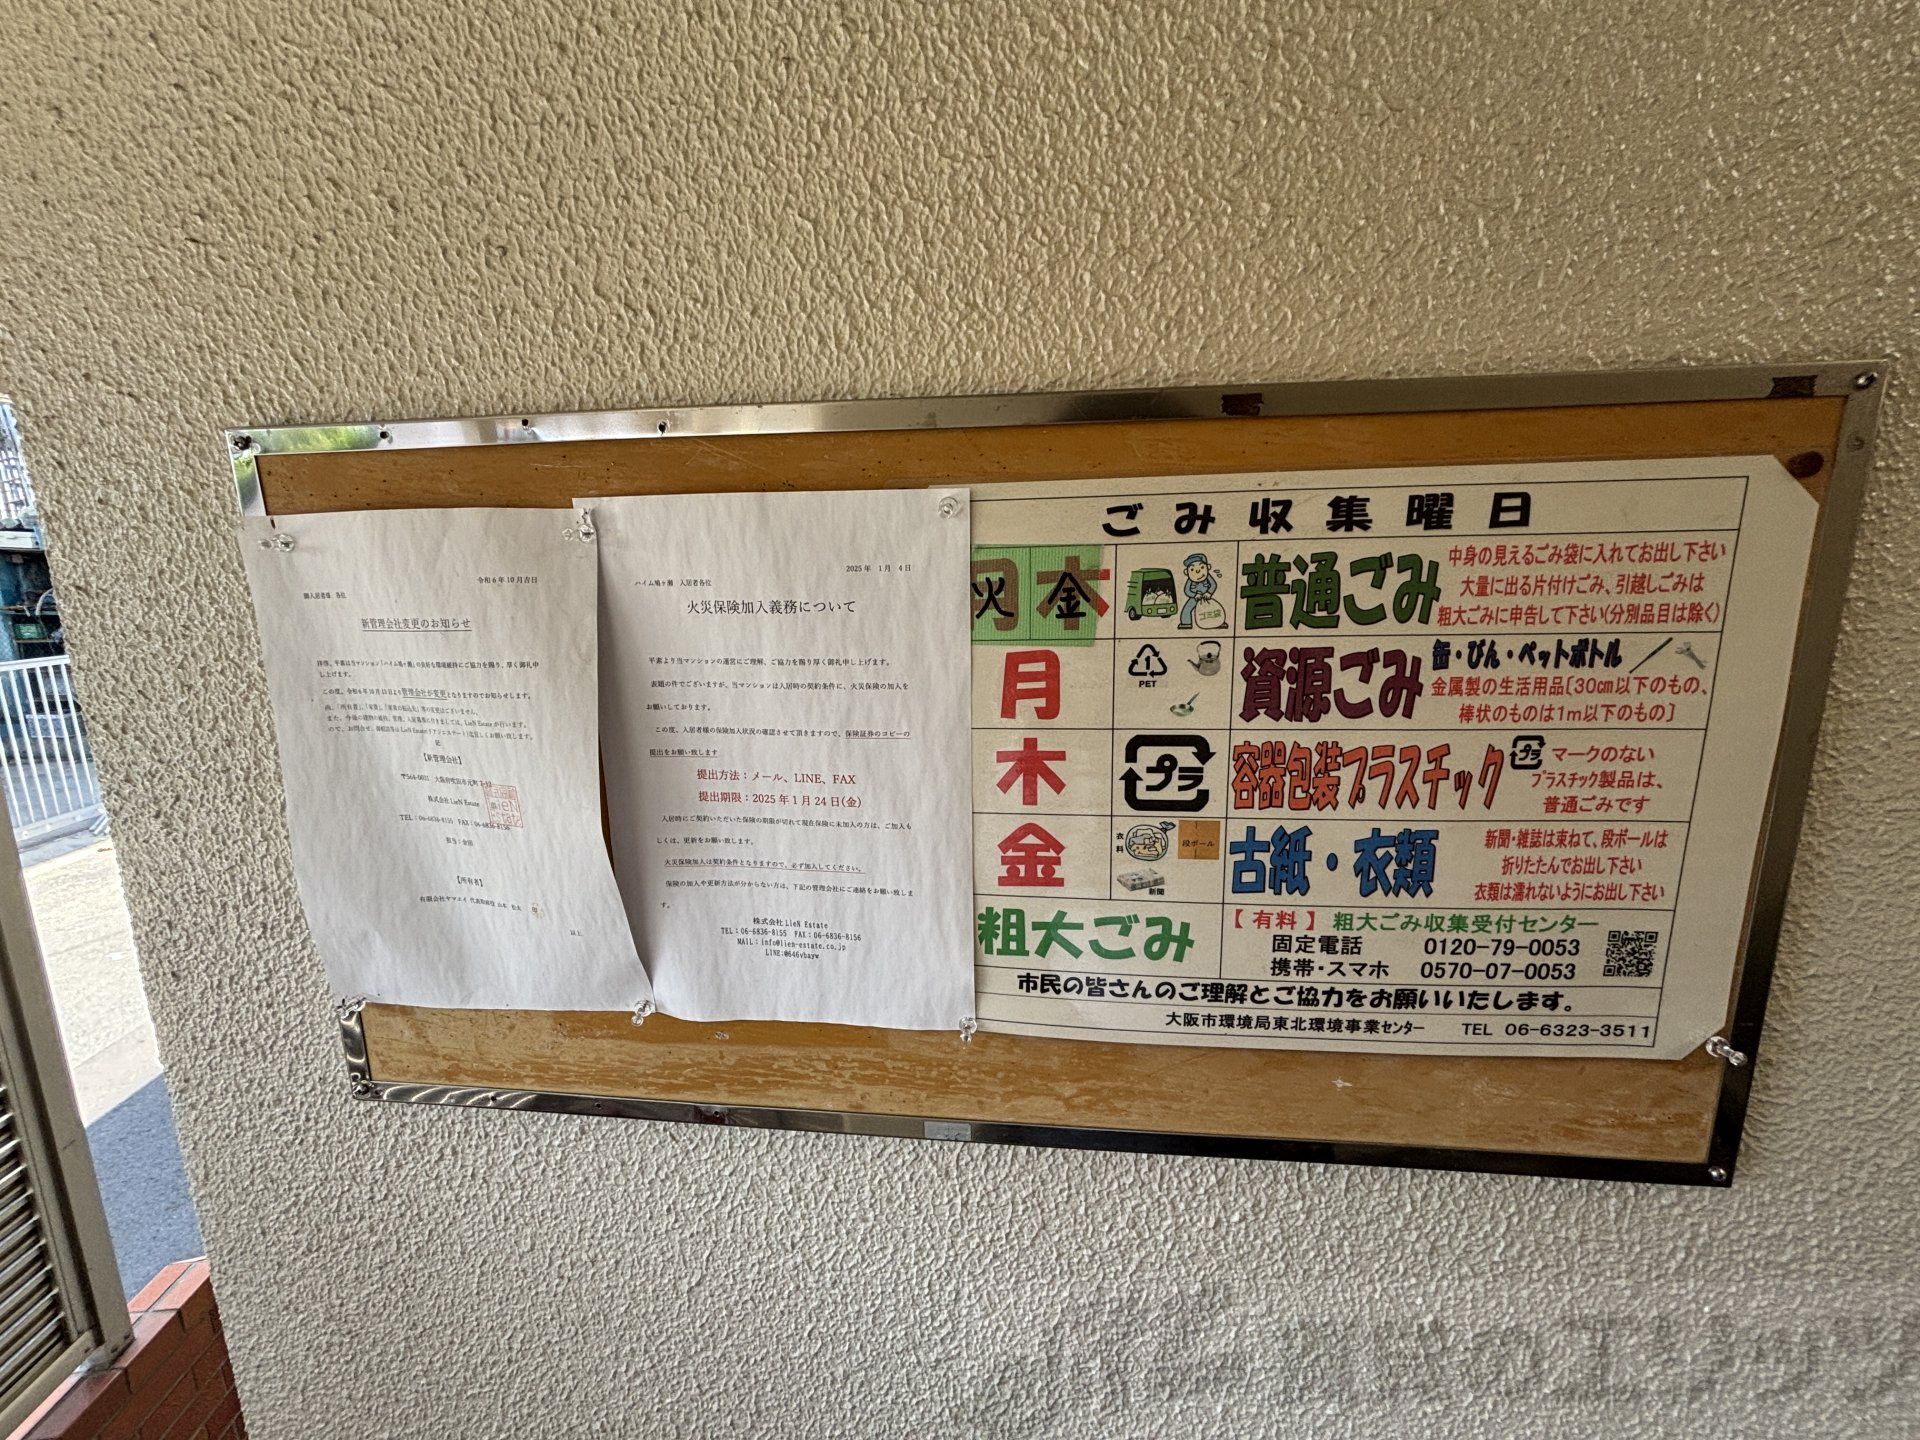 令和6年10月吉日
御入居者様 各位
新管理会社変更のお知らせ
拝啓、平素は当マンション「ハイム鳩ヶ瀬」の良好な環境維持にご協力を賜り、厚く御礼申
し上げます。
この度、令和6年10月15日より管理会社が変更となりますのでお知らせします。
尚、「所有者」、「家賃」、「家賃の振込先」等の変更はございません。
また、今後の建物の維持、管理、入居募集に付きましては、LieN Estateが行います。
ので、お問合せ、御相談等はLieN Estate(リアンエステート)迄宜しくお願い致します。
記
【新管理会社】
〒564-0031 大阪府吹田市元町
株式会社 LieN Estate
TEL:06-6836-8155 FAX:06-6836-8156
担当:金田
【所有者】
有限会社ヤマエイ 代表取締役 山本
以上
2025年 1月 4日
ハイム鳩ヶ瀬 入居者各位
火災保険加入義務について
平素より当マンションの運営にご理解、ご協力を賜り厚く御礼申し上げます。
表題の件でございますが、当マンションは入居時の契約条件に、火災保険の加入を
お願いしております。
この度、入居者様の保険加入状況の確認させて頂きますので、保険証券のコピーの
提出をお願い致します
提出方法:メール、LINE、FAX
提出期限:2025年1月24日(金)
入居時にご契約いただいた保険の期限が切れて現在保険に未加入の方は、ご加入も
しくは、更新をお願い致します。
火災保険加入は契約条件となりますので、必ず加入してください。
保険の加入や更新方法が分からない方は、下記の管理会社にご連絡をお願い致しま
す。
株式会社 LieN Estate
TEL:06-6836-8155 FAX:06-6836-8156
MAIL:info@lien-estate.co.jp
LINE:@646vbayw
ごみ収集曜日
火 金
普通ごみ
中身の見えるごみ袋に入れてお出し下さい
大量に出る片付けごみ、引越しごみは
粗大ごみに申告して下さい(分別品目は除く)
ゴミ袋
月
PET
資源ごみ
缶・びん・ペットボトル
金属製の生活用品〔30cm以下のもの、
棒状のものは1m以下のもの〕
木
プラ
容器包装プラスチック
プラ マークのない
プラスチック製品は、
普通ごみです
金
衣料
段ボール
新聞
古紙・衣類
新聞・雑誌は束ねて、段ボールは
折りたたんでお出し下さい
衣類は濡れないようにお出し下さい
粗大ごみ
【有料】粗大ごみ収集受付センター
固定電話 0120-79-0053
携帯・スマホ 0570-07-0053
市民の皆さんのご理解とご協力をお願いいたします。
大阪市環境局東北環境事業センター TEL 06-6323-3511